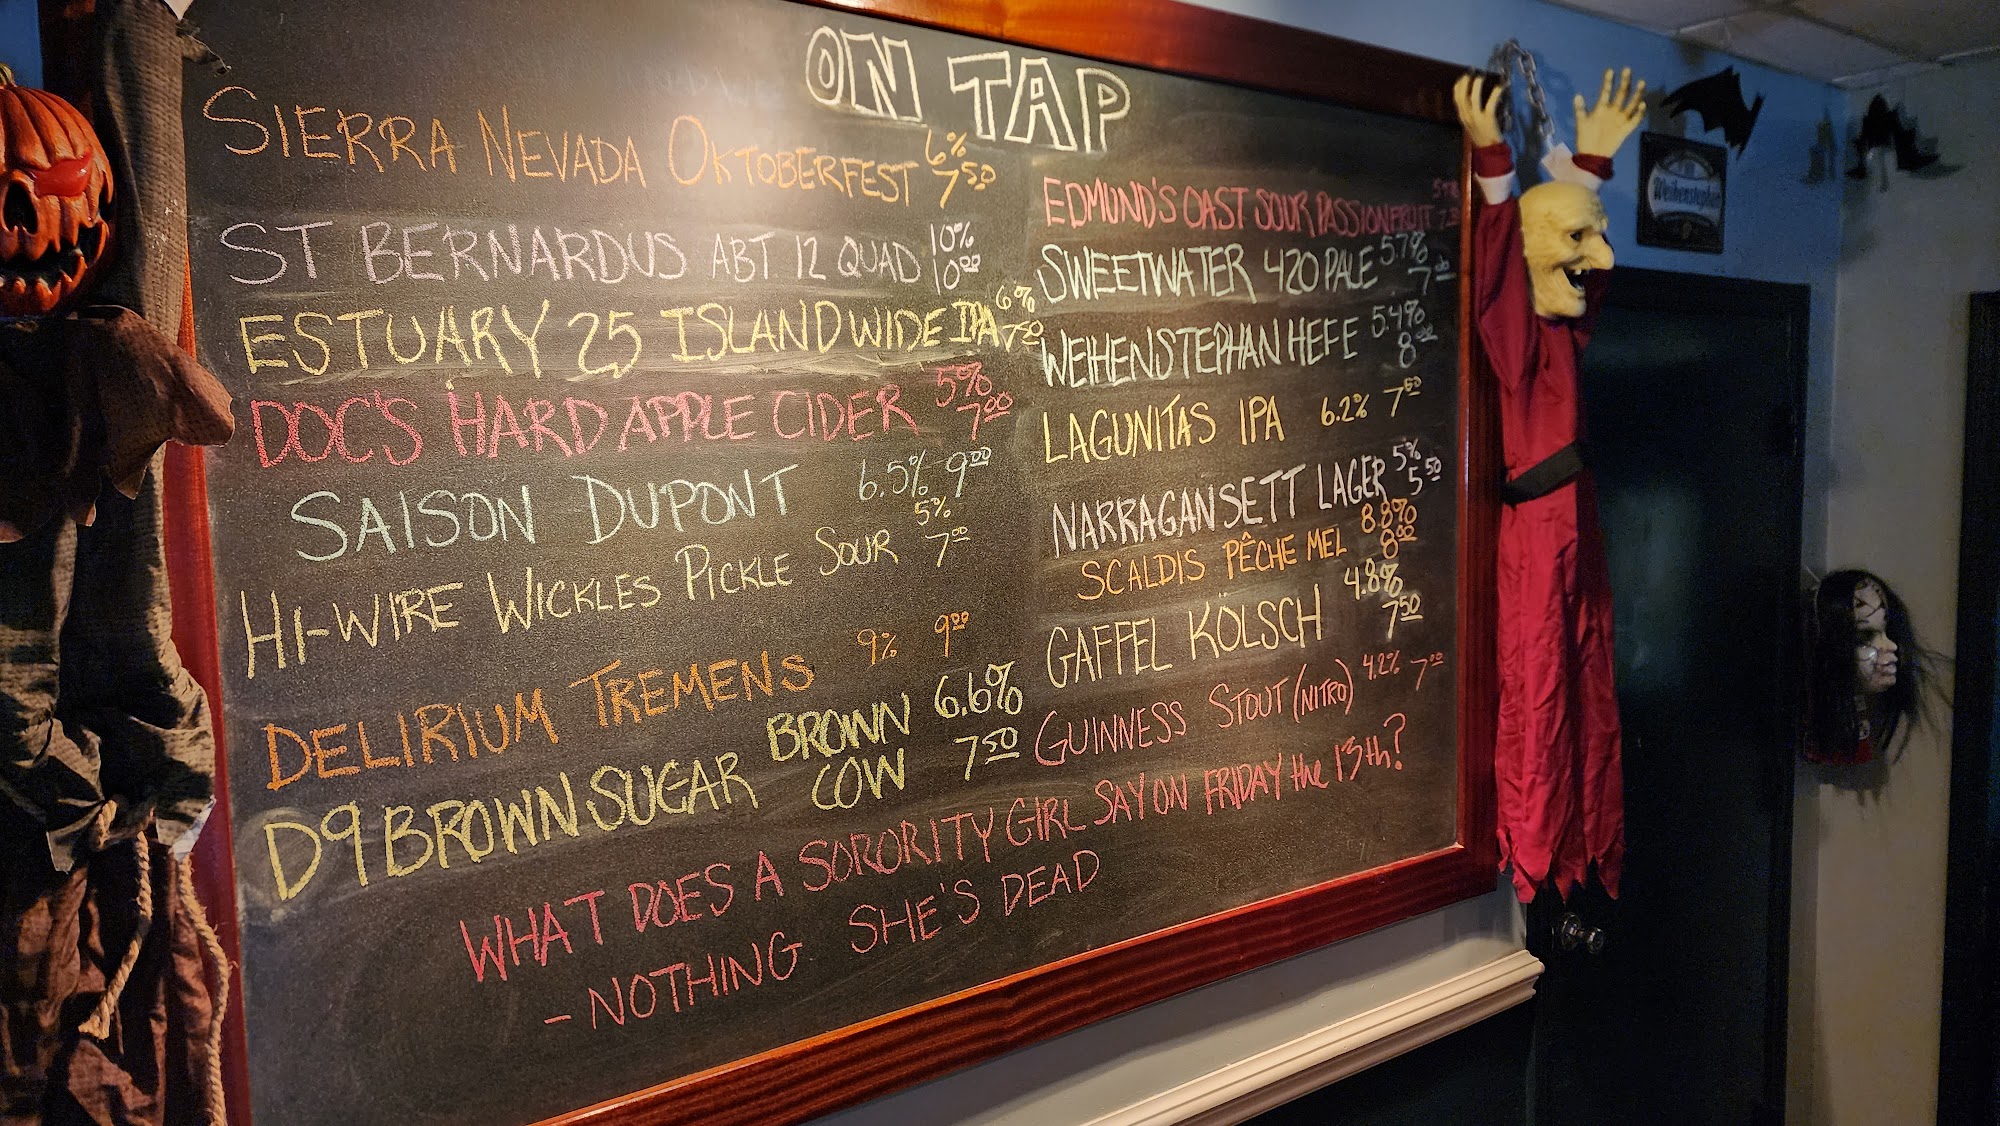 ON TAP
SIERRA NEVADA OKTOBERFEST 6% 7.50
ST BERNARDUS ABT 12 QUAD 10% 10.00
ESTUARY 25 ISLAND WIDE IPA 6% 7.50
DOC'S HARD APPLE CIDER 5% 7.00
SAISON DUPONT 6.5% 9.00
HI-WIRE WICKLES PICKLE SOUR 5% 7.00
DELIRIUM TREMENS 9% 9.00
D9 BROWN SUGAR BROWN COW 6.6% 7.50
EDMUND'S OAST SOUR PASSIONFRUIT
SWEETWATER 420 PALE 5.7% 7.00
WEIHENSTEPHAN HEFE 5.4% 8.00
LAGUNITAS IPA 6.2% 7.50
NARRAGANSETT LAGER 5% 5.50
SCALDIS PÊCHE MEL 8.8% 8.00
GAFFEL KÖLSCH 4.8% 7.50
GUINNESS STOUT (NITRO) 4.2% 7.00
WHAT DOES A SORORITY GIRL SAY ON FRIDAY the 13th?
- NOTHING SHE'S DEAD
Weihenstephan